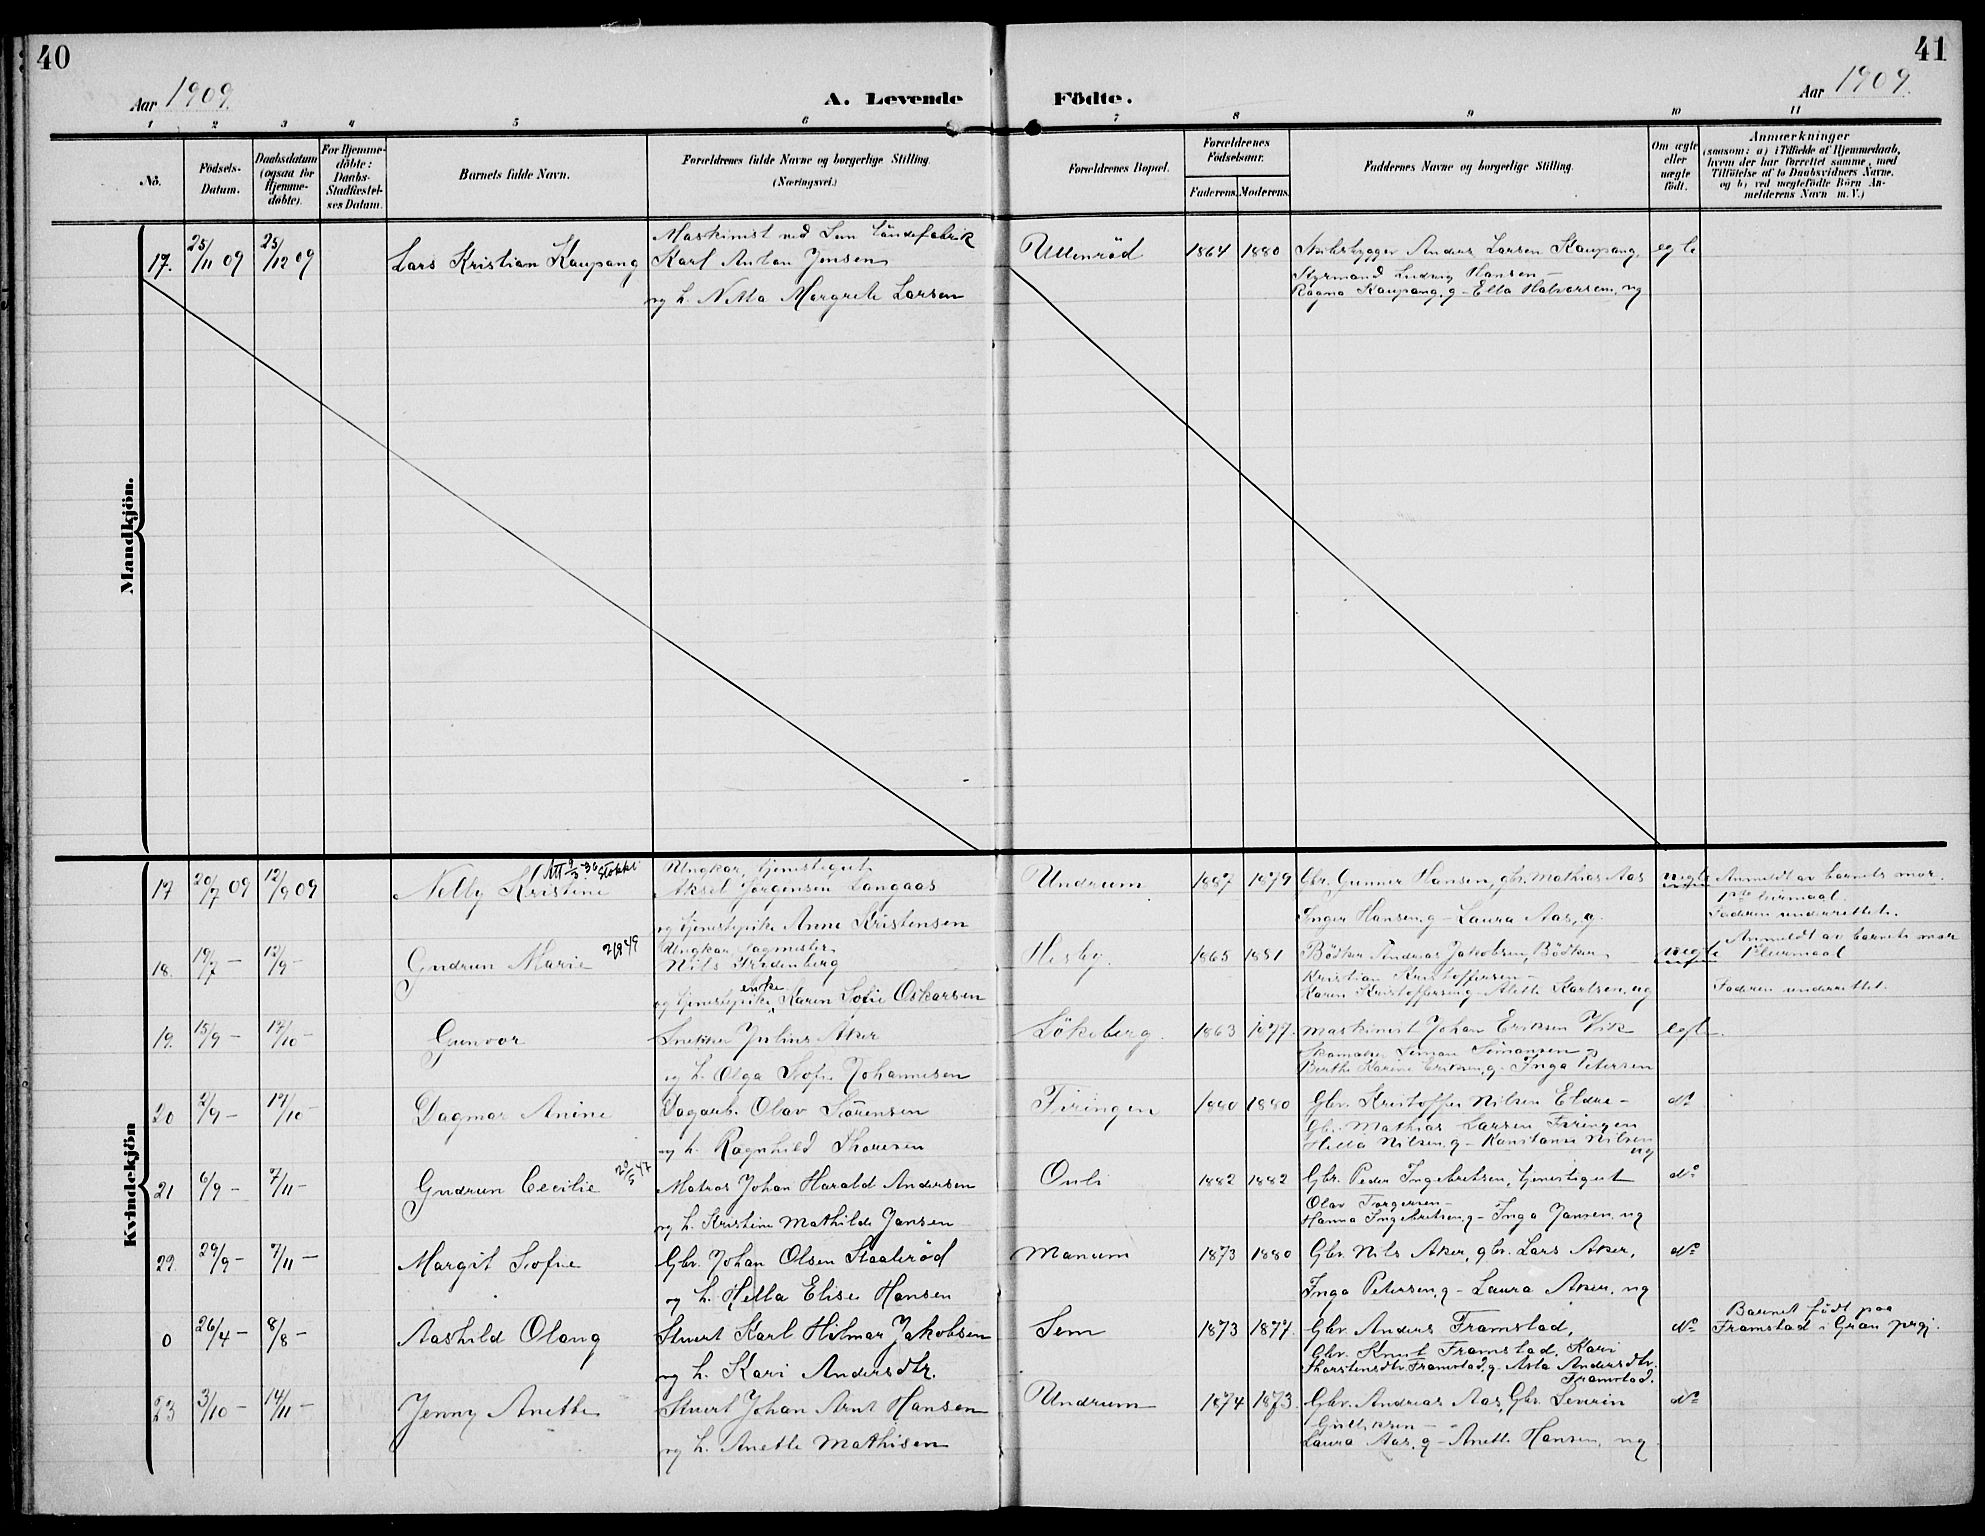 40
41
Aar 1909.
A. Levende
Födte.
Aar 1909.
1 2 3 4 5 6 7 8 9 10 11
No.
Födsels-Datum.
Daabsdatum (ogsaa for Hjemme-döbte).
For Hjemme-döbte: Daabs-Stadfæstel-ses Datum.
Barnets fulde Navn.
Forældrenes fulde Navne og borgerlige Stilling.
(Næringsvei.)
Forældrenes Bopæl.
Forældrenes Födselsaar.
Faderens. Moderens.
Faddernes Navne og borgerlige Stilling.
Om ægte eller uægte födt.
Anmærkninger
(saasom: a) i Tilfælde af Hjemmedaab, hvem der har forrettet samme, med Tilföielse af to Daabsvidners Navne, og b) ved uægtefödte Börn Anmelderens Navn m.V.)
Mandkjön.
17. 25/11 09 25/12 09 Lars Kristian Kaupang
Maskinist ved Sem Tøndefabrik
Karl Anton Jensen
og h. Netta Margrete Larsen
Ullenröd 1864 1880
Anders Larsen Kaupang,
Styrmand Ludvig Hansen –
Ragna Kaupang, g – Ella Halvorsen, ug
egte
Kvindekjön
17 20/7 09 12/9 09 Nelly Kristine
Ungkar, tjenestegut
Aksel Jörgensen Langaas
og tjenestepike Anna Kristensen
Undrum 1887 1879
Gbr. Gunner Hansen, gbr. Mathias Aas
Inger Hansen, g – Laura Aas, g.
uegte
Anmeldt av barnets mor.
1ste leiermaal.
Faderen underrettet.
18. 19/7 – 12/9 – Gudrun Marie
Ungkar Sagmester
Nils Fredenberg
og tjenestepike enke Karen Sofie Oskarsen
Hesby. 1865 1881
Bödker Andreas Jakobsen, Bödker
Kristian Kristoffersen –
Karen Kristoffersen g – Alette Karlsen, ug
uegte
Anmeldt av barnets mor
1ste leiermaal
Faderen underrettet.
19. 15/9 – 17/10 – Gunvor
Snekker Julius Aker
og h. Olga Sofie Johannesen
Lökeberg. 1863 1879.
Maskinist Johan Eriksen Vik
Skomaker Simon Simonsen
Berthe Karine Eriksen, g – Inga Petersen
egte.
20 2/9 – 17/10 – Dagmar Anine
Dagarb. Olav Sörensen
og h. Ragnhild Thoresen
Firingen 1880 1880
Gbr. Kristoffer Nilsen Eldre –
Gbr. Mathias Larsen Firingen
Hella Nilsen, g – Konstance Nilsen
ug
do
21 6/9 – 7/11 – Gudrun Cecilie 20/5 47
Matros Johan Harald Andersen
og h. Kristine Mathilde Jansen
Onli 1882 1882
Gbr. Peder Ingebretsen, tjenestegut
Olav Torgersen –
Hanna Ingebretsen g – Inga Jansen, ug
do
22 29/9 – 7/11 – Margit Sofie
Gbr. Johan Olsen Staaleröd
og h. Hella Elise Hansen
Manum 1873 1880
Gbr. Nils Aker, gbr. Lars Aker,
Inga Petersen, g – Laura Aker, ug
do
0 26/4 – 8/8 – Aashild Olaug
Stuert Karl Hilmar Jakobsen
og h. Kari Andersdtr.
Sem 1873 1877.
Gbr Anders Framstad,
Gbr. Knut Framstad, Kari
Thorstensdtr. Framstad, g – Asla Andersdtr.
Framstad.
do
Barnet födt paa
Framstad i Gran prgj.
23 3/10 – 14/11 – Jenny Anette
Stuert Johan Arnt Hansen
og h. Anette Mathisen
Undrum 1874 1873.
Gbr. Andreas Aas, Gbr. Severin
Gulliksen –
Laura Aas, g – Anette Hansen, ug
do